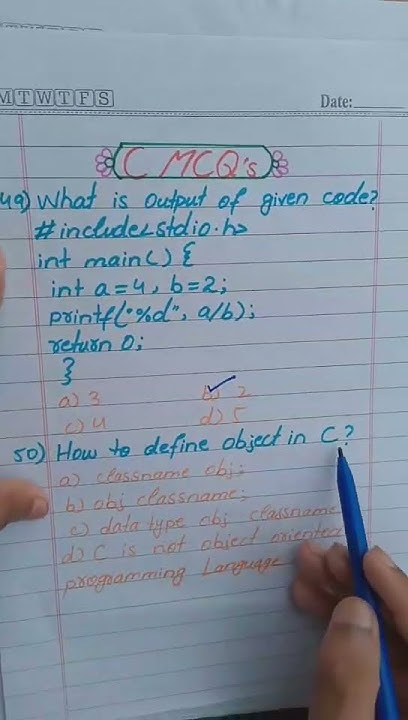 M T W T F S
Date:
C MCQ's
49) What is output of given code?
#include<stdio.h>
int main() {
int a=4, b=2;
printf("%d", a/b);
return 0;
}
a) 3 b) 2
c) 4 d) 5
50) How to define object in C?
a) classname obj;
b) obj classname;
c) data type obj classname
d) C is not object oriented
programming Language